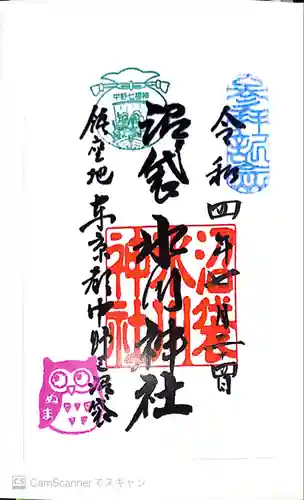 参拝記念
令和四年七月二四日
中野七福神
沼袋 氷川神社
沼袋氷川神社
鎮座地 東京都中野区沼袋
ぬま
CS CamScannerでスキャン